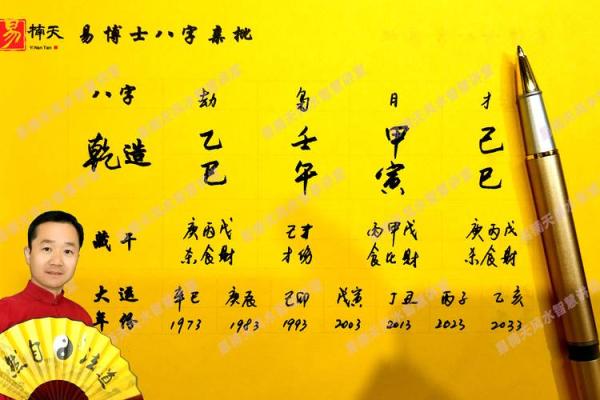 易
楠天
Yi Nan Tian
易博士八字亲批
八字 劫 枭 日 才
乾造 乙 壬 甲 己
巳 午 寅 巳
藏干 庚丙戊 丙甲戊 庚丙戊
杀食财 才伤 食比财 杀食财
大運 辛巳 庚辰 己卯 戊寅 丁丑 丙子 乙亥
年份 1973 1983 1993 2003 2013 2023 2033
然自法道
易楠天风水智慧讲堂